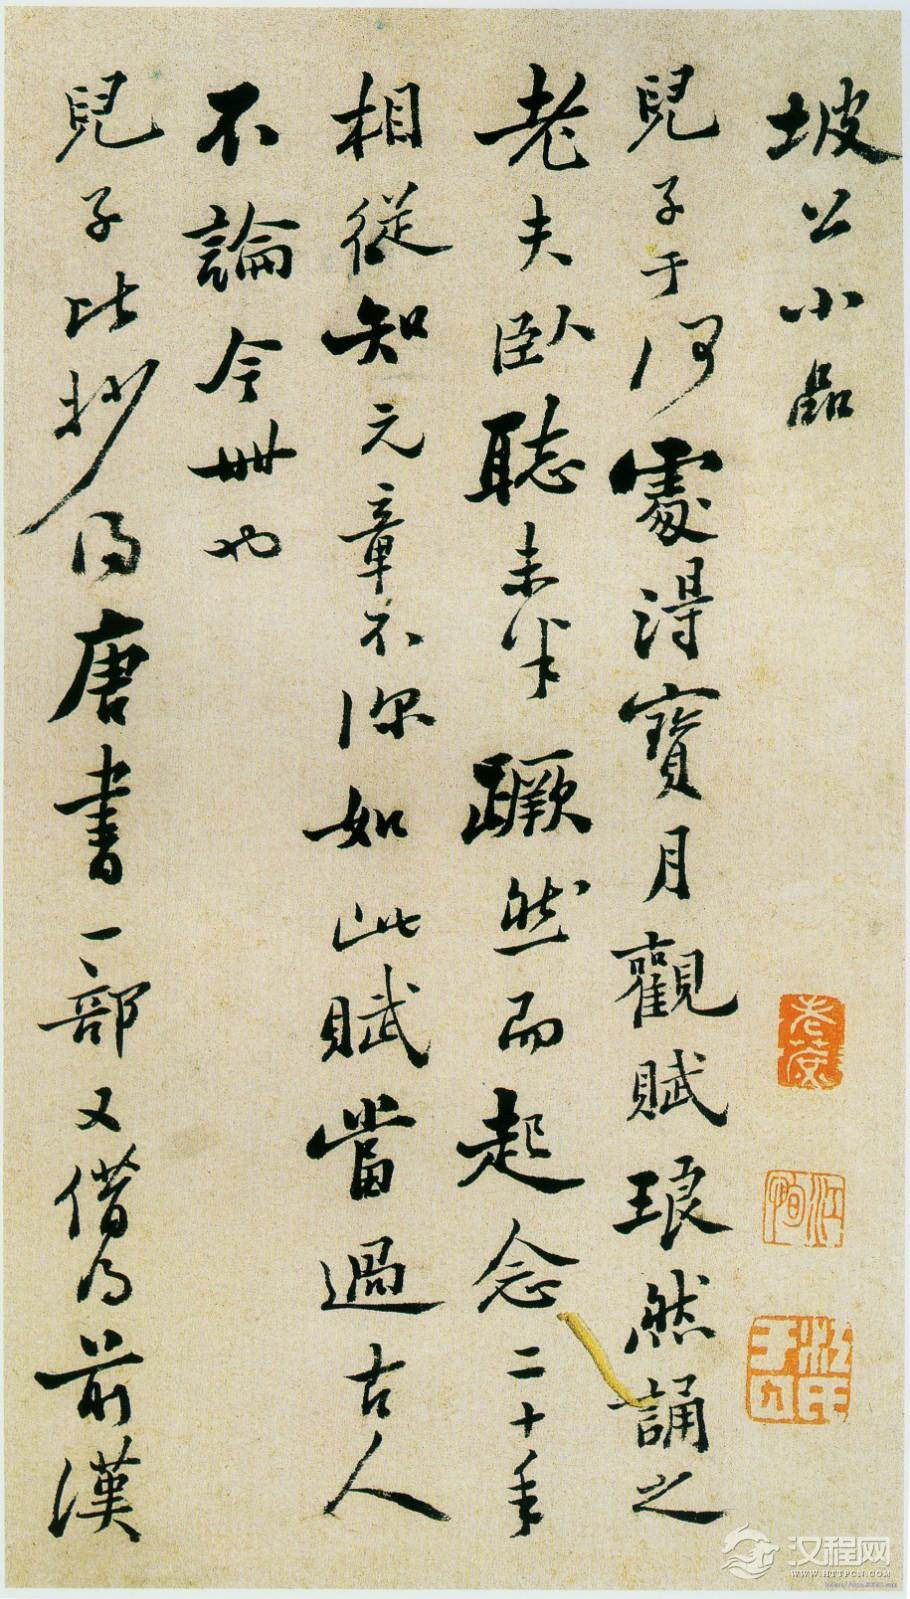 坡公小品
兒子于何處得寶月觀賦琅然誦之
老夫臥聽未半蹶然而起念二十年
相從知元章不深如此賦當過古人
不論今世也
兒子比抄得唐書一部又借得前漢
汉程网
WWW.HTTPCN.COM